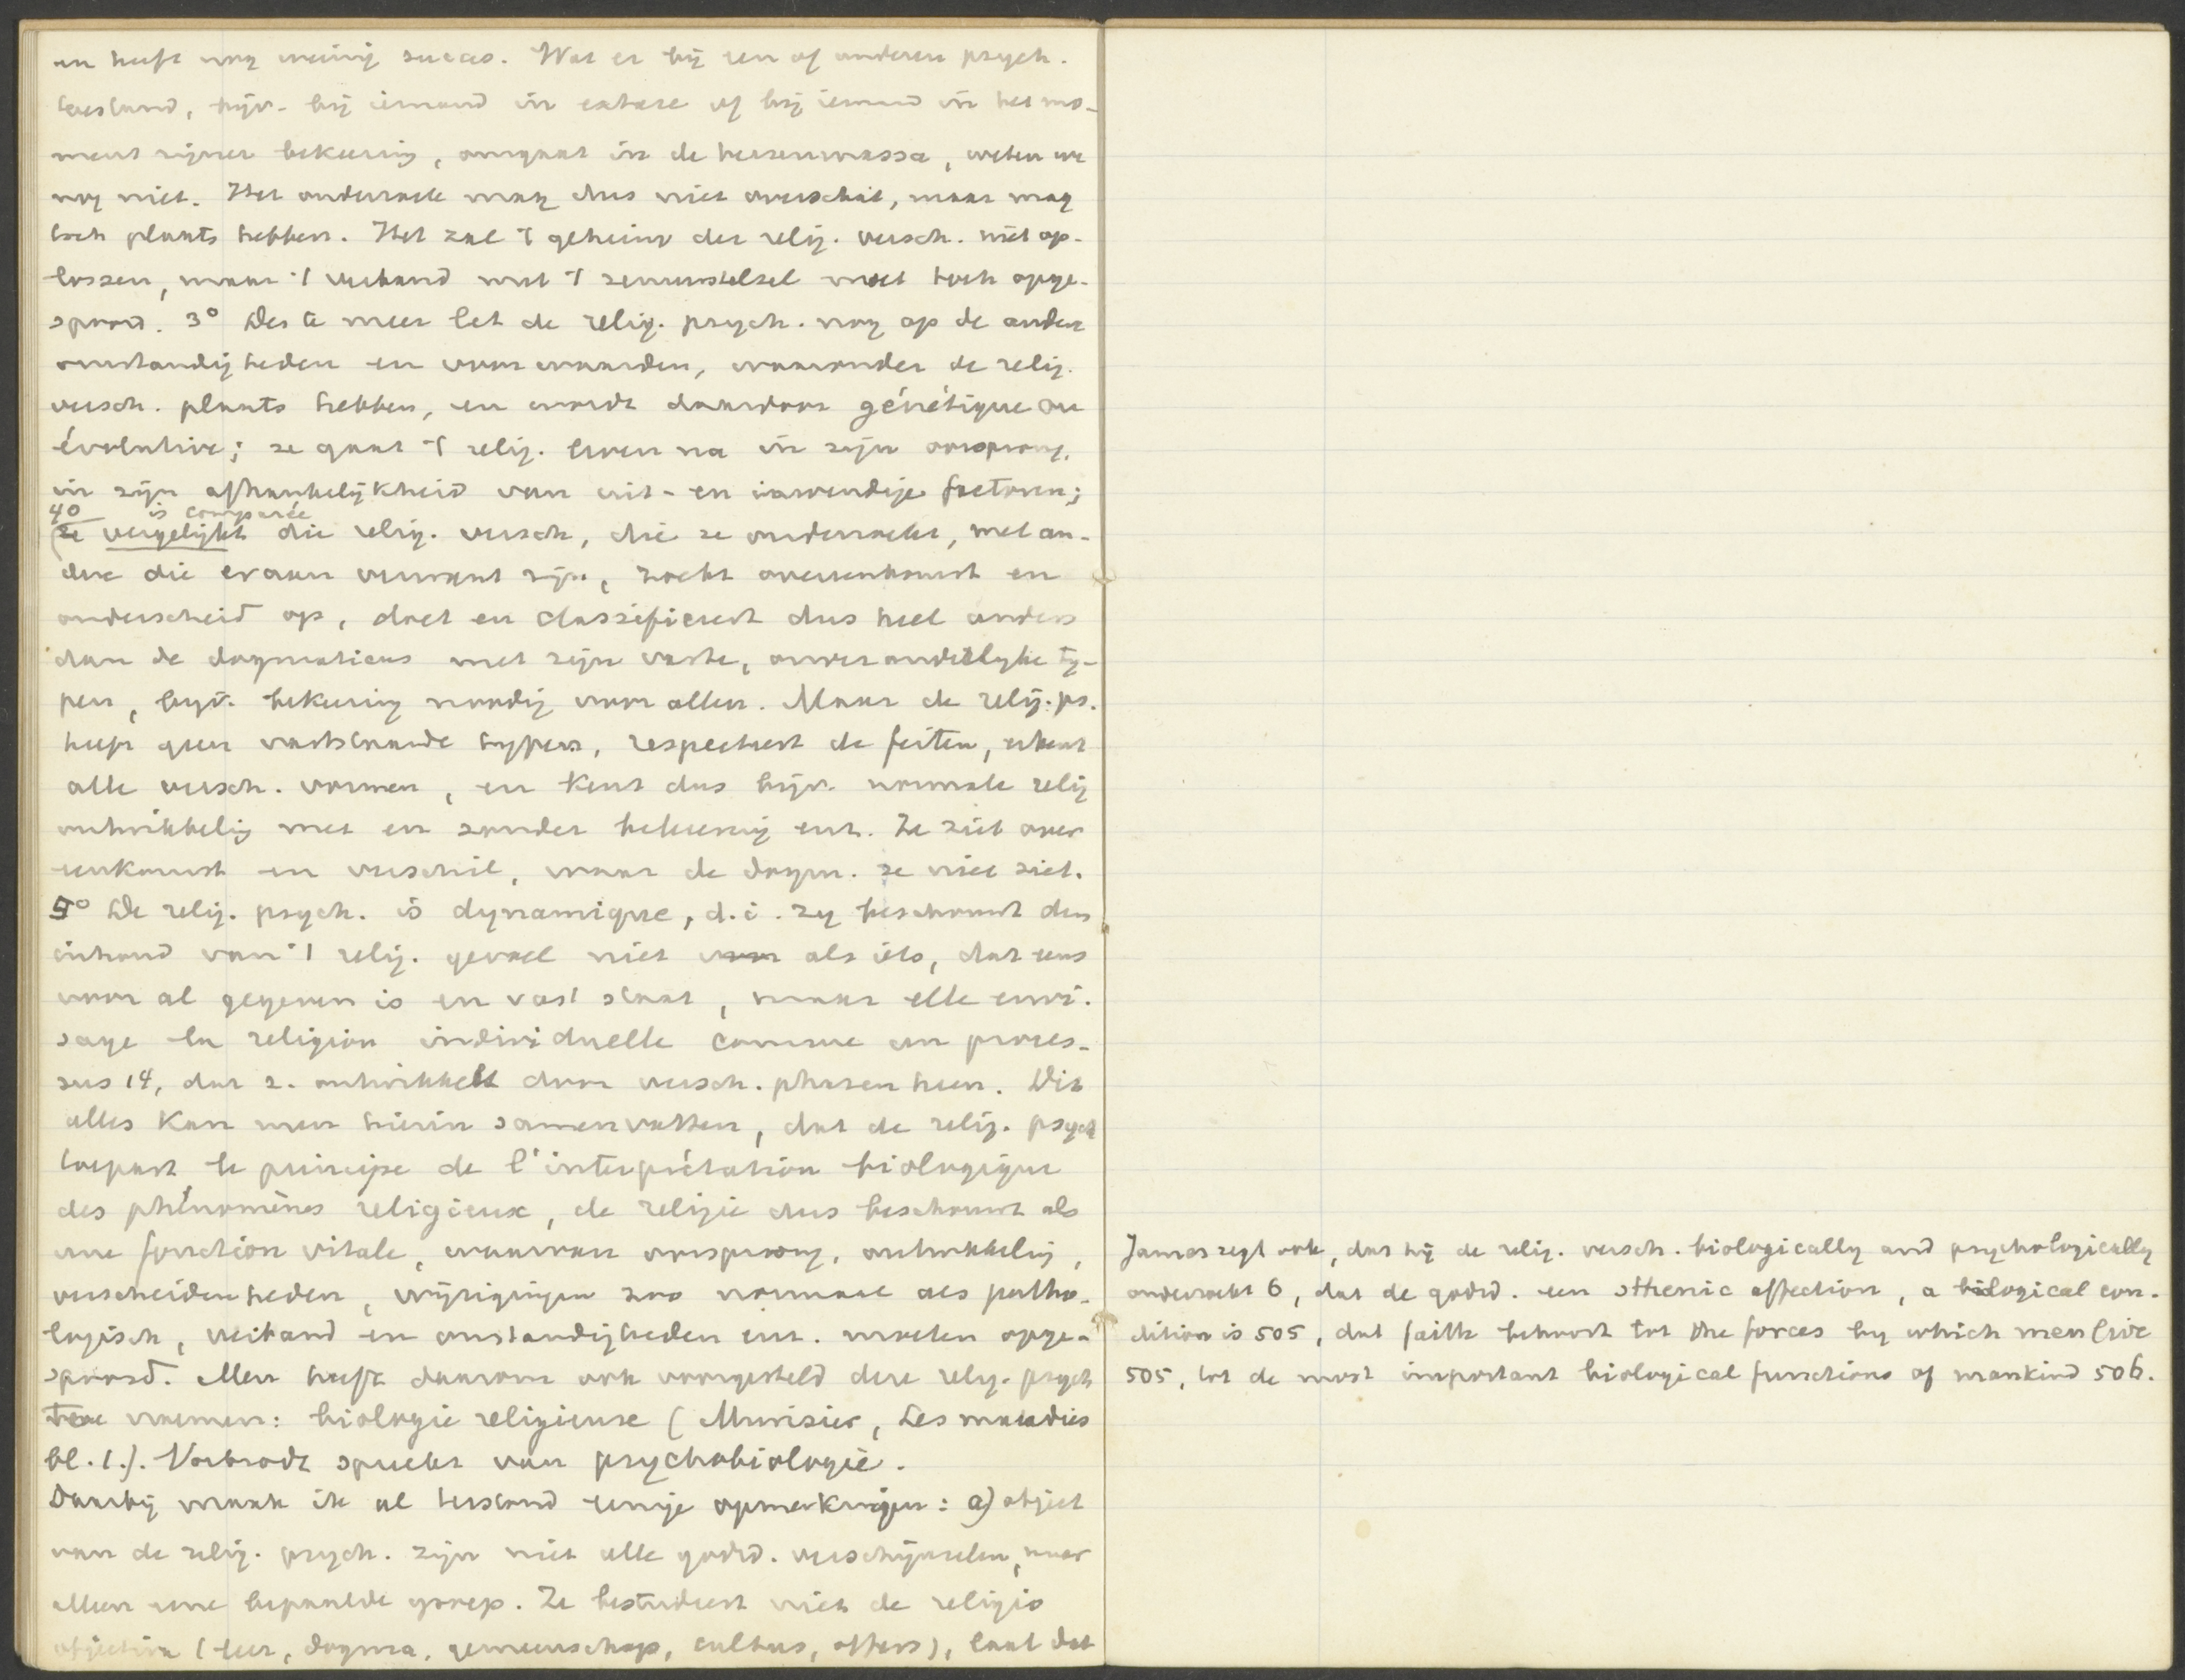 en heeft nog weinig succes. Wat er bij een of anderen psych.
toestand, bijv. bij iemand in extase of bij iemand in het mo-
ment zijner bekeering, omgaat in de hersenmassa, weten we
nog niet. Het onderzoek mag dus niet overschat, maar mag
toch plaats hebben. Het zal 't geheim der relig. versch. niet op-
lossen, maar 't verband met 't zenuwstelsel moet toch opge-
spoord. 3° Des te meer let de relig. psych. nog op de andere
omstandigheden en voorwaarden, waaronder de relig.
versch. plaats hebben, en wordt daardoor génétique ou
évolutive; ze gaat 't relig. leven na in zijn oorsprong,
in zijn afhankelijkheid van uit- en inwendige factoren;
4° is comparée
ze vergelijkt die relig. versch, die ze onderzoekt, met an-
dere die eraan verwant zijn, zoekt overeenkomst en
onderscheid op, doet en classificeert dus heel anders
dan de dogmaticus met zijn vaste, onveranderlijke ty-
pen, bijv. bekeering noodig voor allen. Maar de relig. ps.
heeft geen vaststaande typen, respecteert de feiten, erkent
alle versch. vormen, en kent dus bijv. normale relig
ontwikkelig met en zonder bekeering enz. Ze ziet over
eenkomst en verschil, waar de dogm. ze niet ziet.
5° De relig. psych. is dynamique, d.i. zy beschouwt den
inhoud van 't relig. gevoel niet als iets, dat eens
voor al gegeven is en vast staat, maar elle envi-
sage la religion individuelle comme un proces-
sus 14, dat z. ontwikkelt door versch. phasen heen. Dit
alles kan men hierin samenvatten, dat de relig. psych
toepast le principe de l'interprétation biologique
des phénomènes religieux, de religie dus beschouwt als
une fonction vitale, waarvan oorsprong, ontwikkelig,
verscheidenheden, wijzigingen zoo normaal als patho-
logisch, verband en omstandigheden enz. moeten opge-
spoord. Men heeft daarom ook voorgesteld deze relig. psych
te noemen: biologie religieuse (Murisier, Les maladies
bl. 1.). Vorbrodt spreekt van psychobiologie.
Daarbij maak ik al terstond eenige opmerkingen: a) object
van de relig. psych. zijn niet alle godsd. verschijnselen, maar
alleen eene bepaalde groep. Ze bestudeert niet de religio
objectiva (leer, dogma, gemeenschap, cultus, offers), laat dat
James zegt ook, dat hij de relig. versch. biologically and psychologically
onderzoekt 6, dat de godsd. een sthenic affection, a biological con-
dition is 505, dat faith behoort tot the forces by which men live
505, tot de most important biological functions of mankind 506.